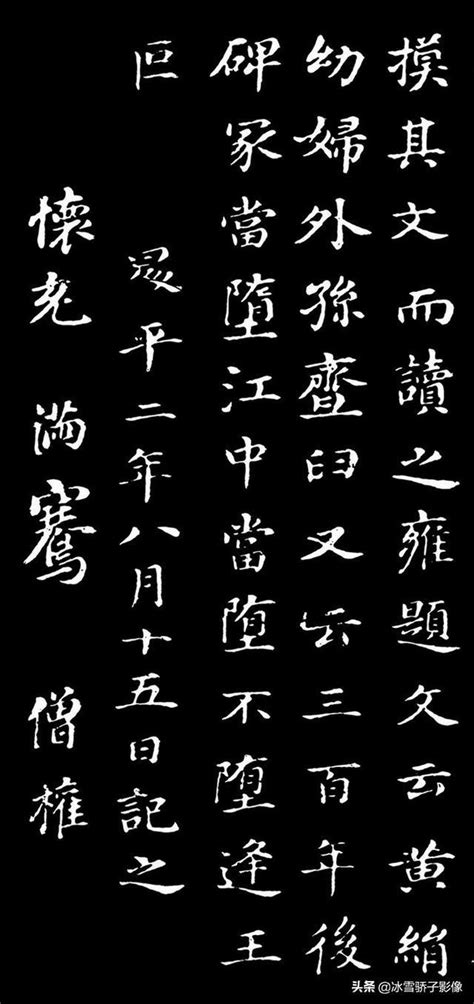 摸其文而讀之雍題文云黃絹
幼婦外孫齏臼又云三百年後
碑冢當墮江中當堕不堕逢王
叵 昇平二年八月十五日記之
懷充 滿騫 僧權
头条 @冰雪骄子影像